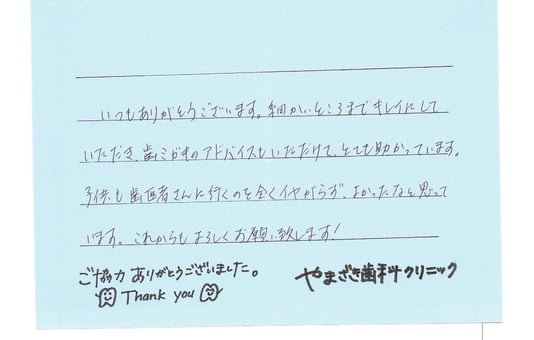 いつもありがとうございます。細かいところまでキレイにして
いただき、歯ミガキのアドバイスもいただけて、とても助かっています。
子供も歯医者さんに行くのを全くイヤがらず、よかったなと思って
います。これからもよろしくお願い致します!
ご協力ありがとうございました。
Thank you
やまざき歯科クリニック